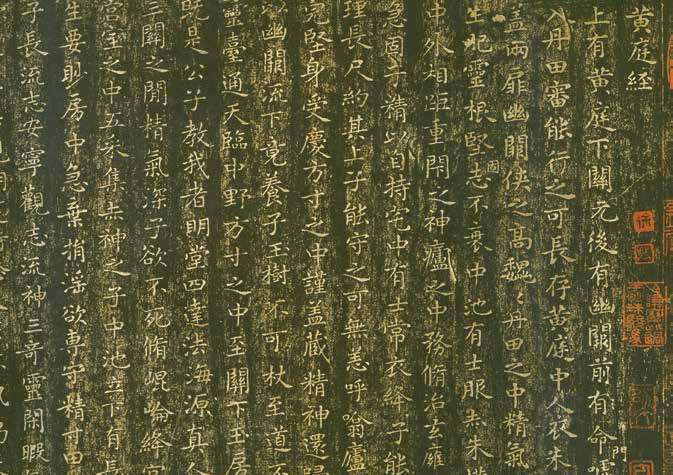 黄庭経
上有黄庭下關元後有幽闕前有命
入丹田審能行之可長存黄庭中人衣朱
蓋兩扉幽闕俠之高魏〻丹田之中精氣
生肥靈根堅志不衰中池有士服赤朱
固
中外相距重閉之神廬之中務脩治玄膺
急固子精以自持宅中有士常衣絳子能
理長尺約其上子能守之可無恙呼噏廬
完堅身受慶方寸之中謹盖藏精神還歸
以幽闕流下竟養子玉樹不可杖至道不
靈臺通天臨中野方寸之中至關下玉房
既是公子教我者明堂四達法海源真人
三關之間精氣深子欲不死脩崐崘絳宮
宮室之中五采集赤神之子中池立下有長
生要眇房中急棄捐淫欲專守精寸田
子長流志安寧觀志流神三奇靈閑暇